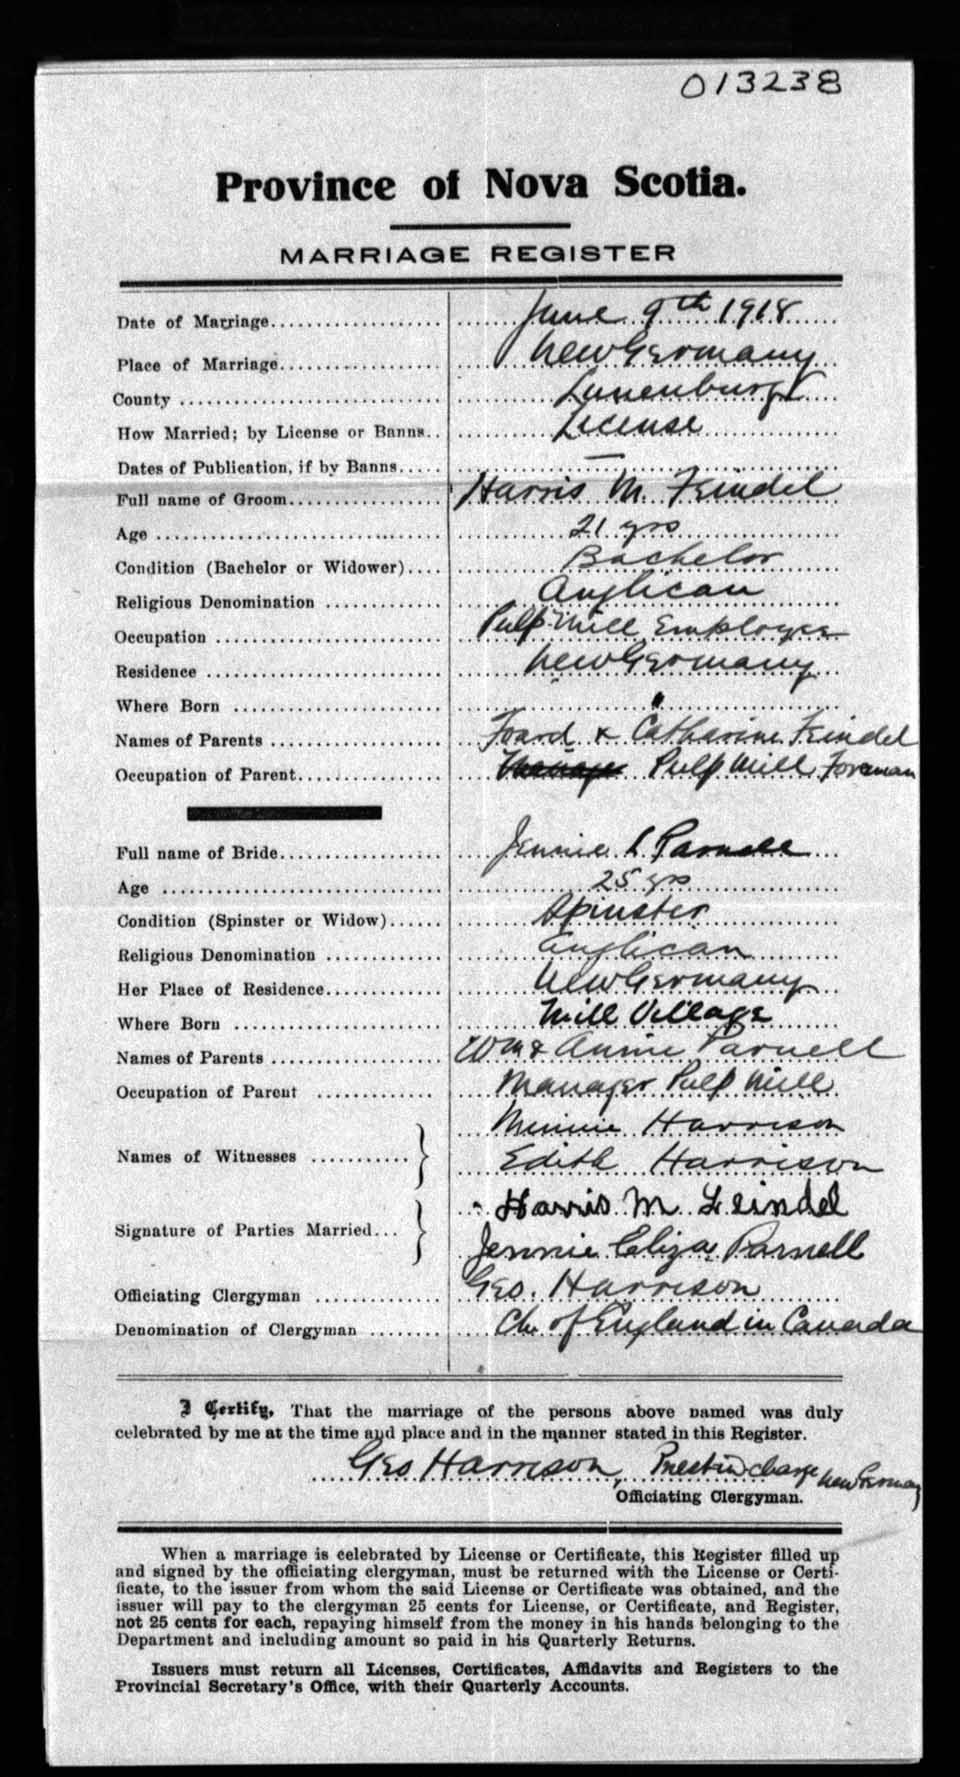 013238
Province of Nova Scotia.
MARRIAGE REGISTER
Date of Marriage.................... June 9th 1918
Place of Marriage................... New Germany
County .............................. Lunenburg
How Married; by License or Banns.. License
Dates of Publication, if by Banns..... —
Full name of Groom.................. Harris M. Feindel
Age .................................. 21 yrs
Condition (Bachelor or Widower).... Bachelor
Religious Denomination ............. Anglican
Occupation .......................... Pulp Mill Employee
Residence ........................... New Germany
Where Born ........................
Names of Parents .................... Foard & Catharine Feindel
Occupation of Parent................. Manager Pulp Mill Foreman
Full name of Bride................... Jennie L Parnell
Age ................................. 25 yrs
Condition (Spinster or Widow)...... Spinster
Religious Denomination ............. Anglican
Her Place of Residence.............. New Germany
Where Born ......................... Mill Village
Names of Parents .................... Wm & Annie Parnell
Occupation of Parent ............... Manager Pulp Mill
Minnie Harrison
Names of Witnesses ...........
Edith Harrison
Harris M Feindel
Signature of Parties Married...
Jennie Eliza Parnell
Officiating Clergyman ............... Geo. Harrison
Denomination of Clergyman ......... Ch. of England in Canada
I Certify, That the marriage of the persons above named was duly
celebrated by me at the time and place and in the manner stated in this Register.
Geo Harrison, Priest in charge New Germany
Officiating Clergyman.
When a marriage is celebrated by License or Certificate, this Register filled up
and signed by the officiating clergyman, must be returned with the License or Certi-
ficate, to the issuer from whom the said License or Certificate was obtained, and the
issuer will pay to the clergyman 25 cents for License, or Certificate, and Register,
not 25 cents for each, repaying himself from the money in his hands belonging to the
Department and including amount so paid in his Quarterly Returns.
Issuers must return all Licenses, Certificates, Affidavits and Registers to the
Provincial Secretary's Office, with their Quarterly Accounts.